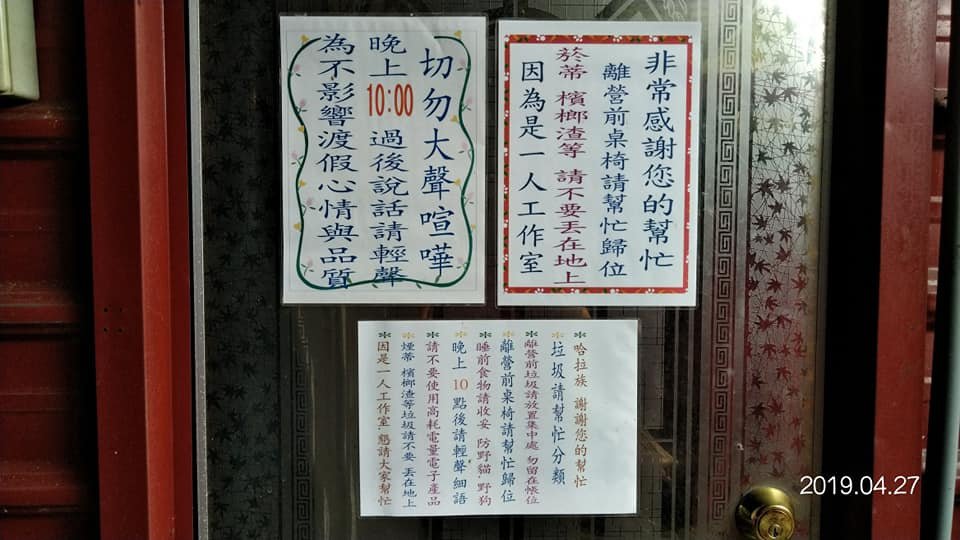 非常感謝您的幫忙
離營前桌椅請幫忙歸位
菸蒂 檳榔渣等 請不要丟在地上
因為是一人工作室
切勿大聲喧嘩
晚上10:00過後說話請輕聲
為不影響渡假心情與品質
*哈拉族 謝謝您的幫忙
*垃圾請幫忙分類
*離營前垃圾請放置集中處 勿留在帳位
*離營前桌椅請幫忙歸位
*睡前食物請收妥 防野貓 野狗
*晚上10點後請輕聲細語
*請不要使用高耗電量電子產品
*煙蒂 檳榔渣等垃圾請不要 丟在地上
*因是一人工作室 懇請大家幫忙
2019.04.27